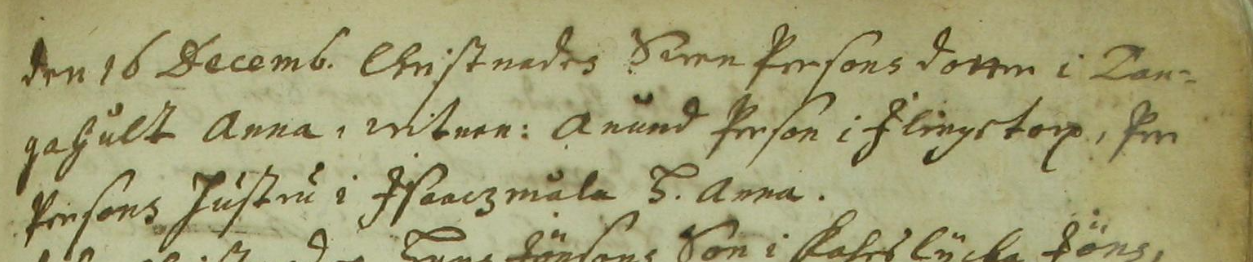 den 16 Decemb. Christnades Sven Persons dotter i Tan-
gahult Anna, witnen: Anund Person i Flingstorp, Per
Persons hustru i Isaaczmåla H. Anna.
Jönsons Son i Jöns,